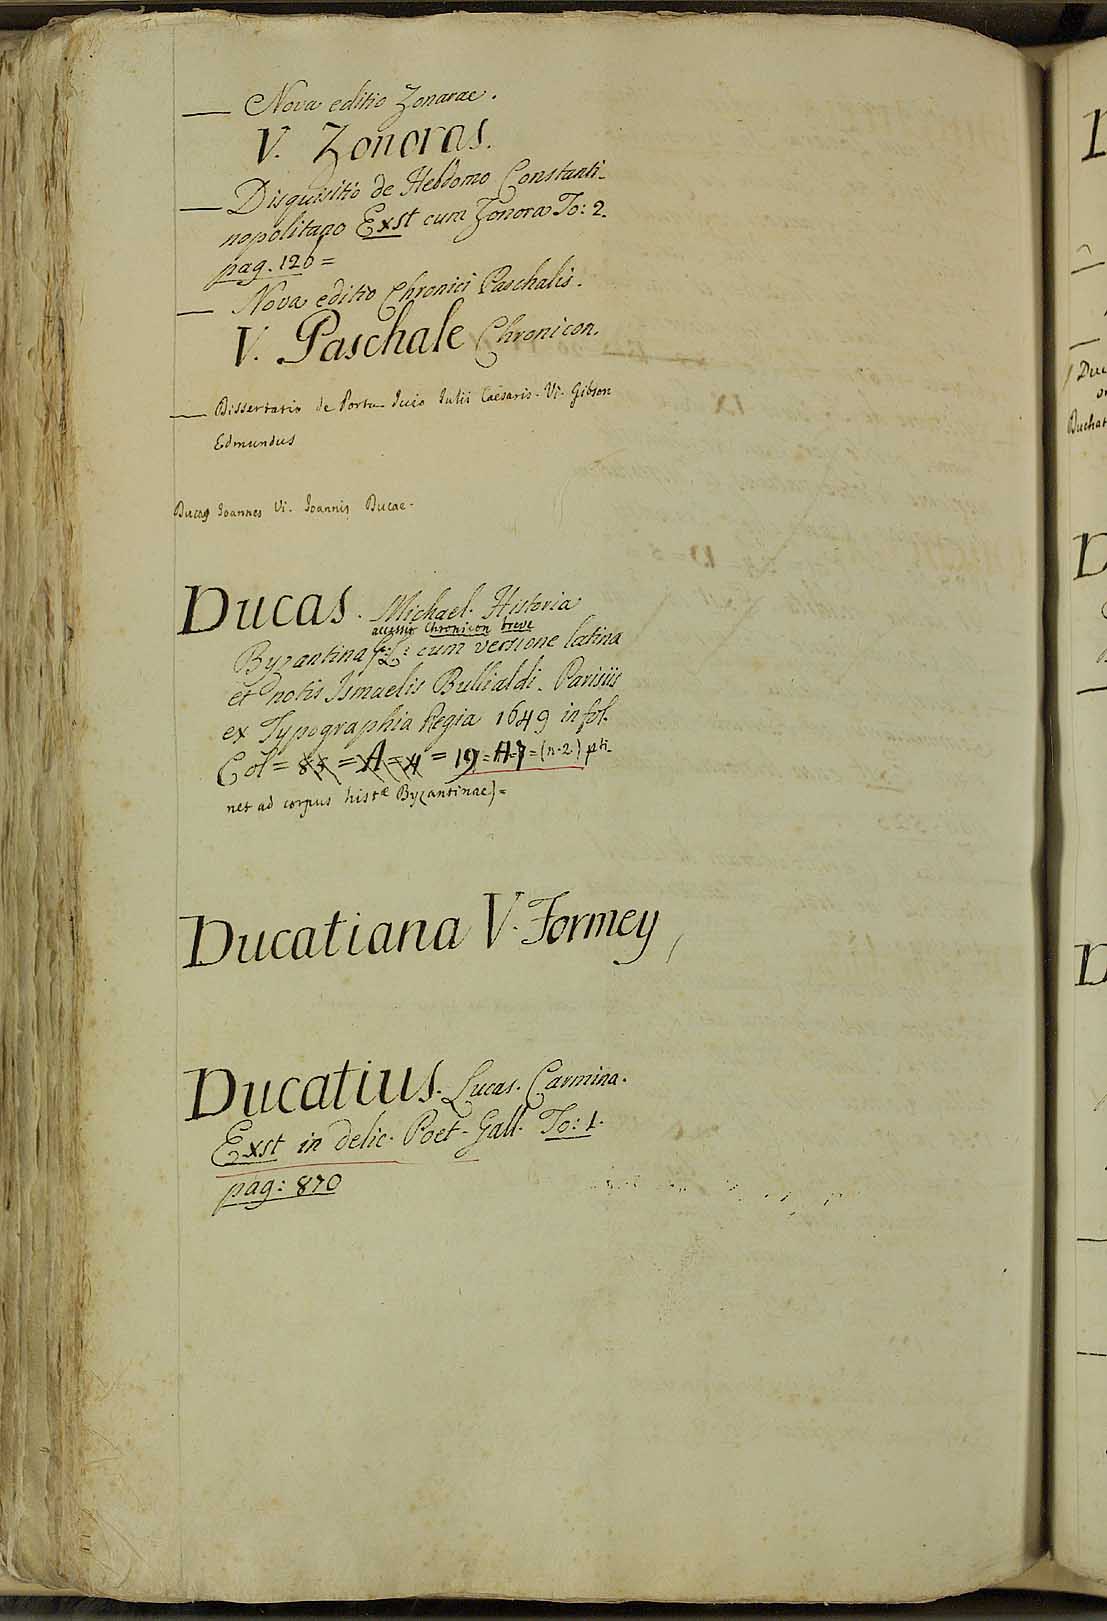 — Nova editio Zonarae.
V. Zonoras.
— Disquisitio de Hebdomo Constanti-
nopolitano Exst cum Zonora To: 2.
pag. 120 =
— Nova editio Chronici Paschalis.
V. Paschale Chronicon.
— Dissertatio de Portu Iccio Iulii Caesaris. Vi. Gibson
Edmundus
Ducas Joannes Vi. Ioannis Ducae.
Ducas. Michael. Historia
accessit Chronicon breve
Byzantina cum versione latina
et notis Ismaelis Bullialdi. Parisiis
ex Typographia Regia 1649 in fol.
Col = 85 = A = 4 = 19 = A-7 = (n. 2) pti-
net ad corpus histæ Byzantinae) =
Ducatiana V. Formey
Ducatius. Lucas. Carmina.
Exst in delic. Poet. Gall. To: 1.
pag: 870